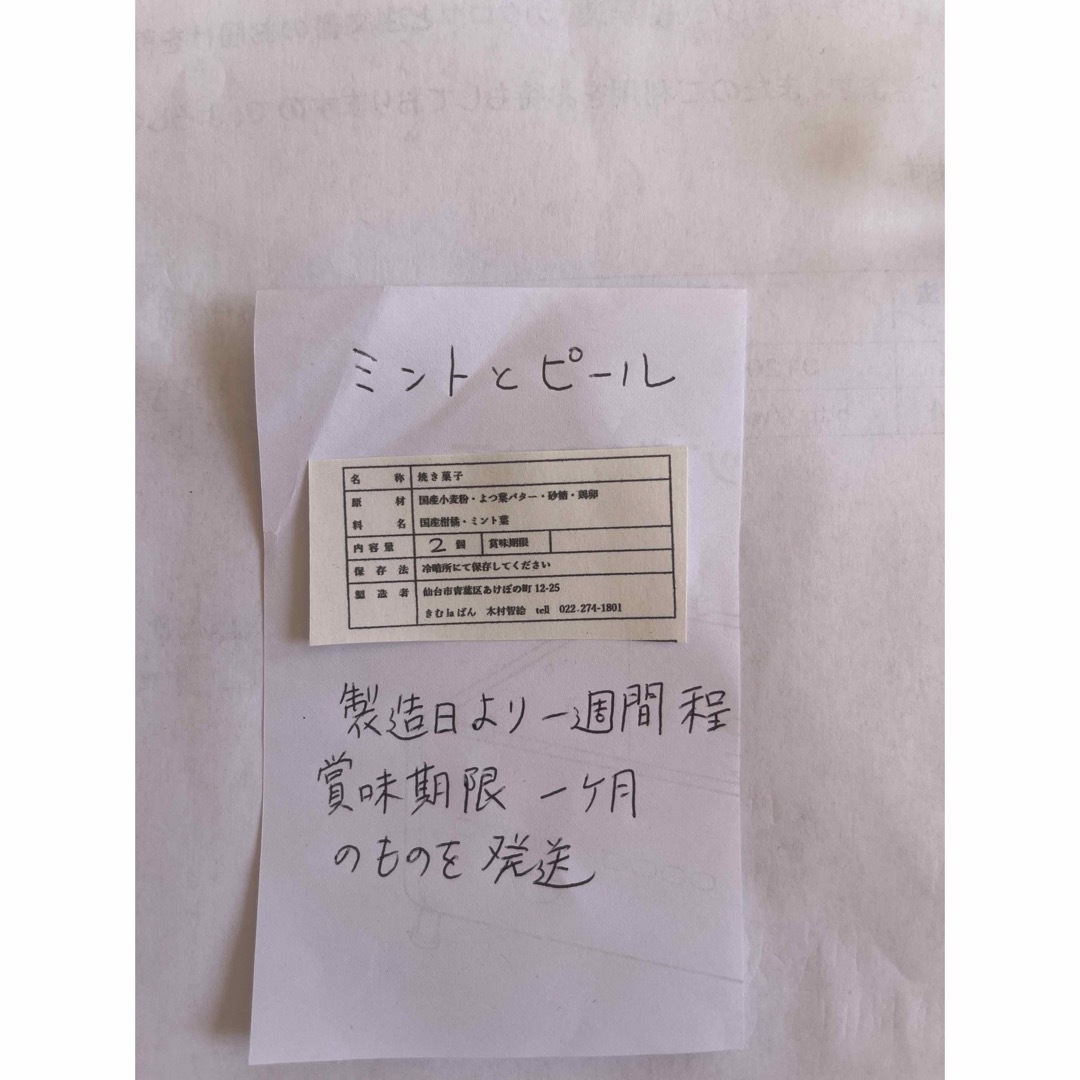 ミントとピール
名称 焼き菓子
原材 国産小麦粉・よつ葉バター・砂糖・鶏卵
料名 国産柑橘・ミント葉
内容量 2個 賞味期限
保存法 冷暗所にて保存してください
製造者 仙台市青葉区あけぼの町12-25
きむlaぱん 木村智絵 tell 022-274-1801
製造日より一週間程
賞味期限 一ケ月
のものを発送